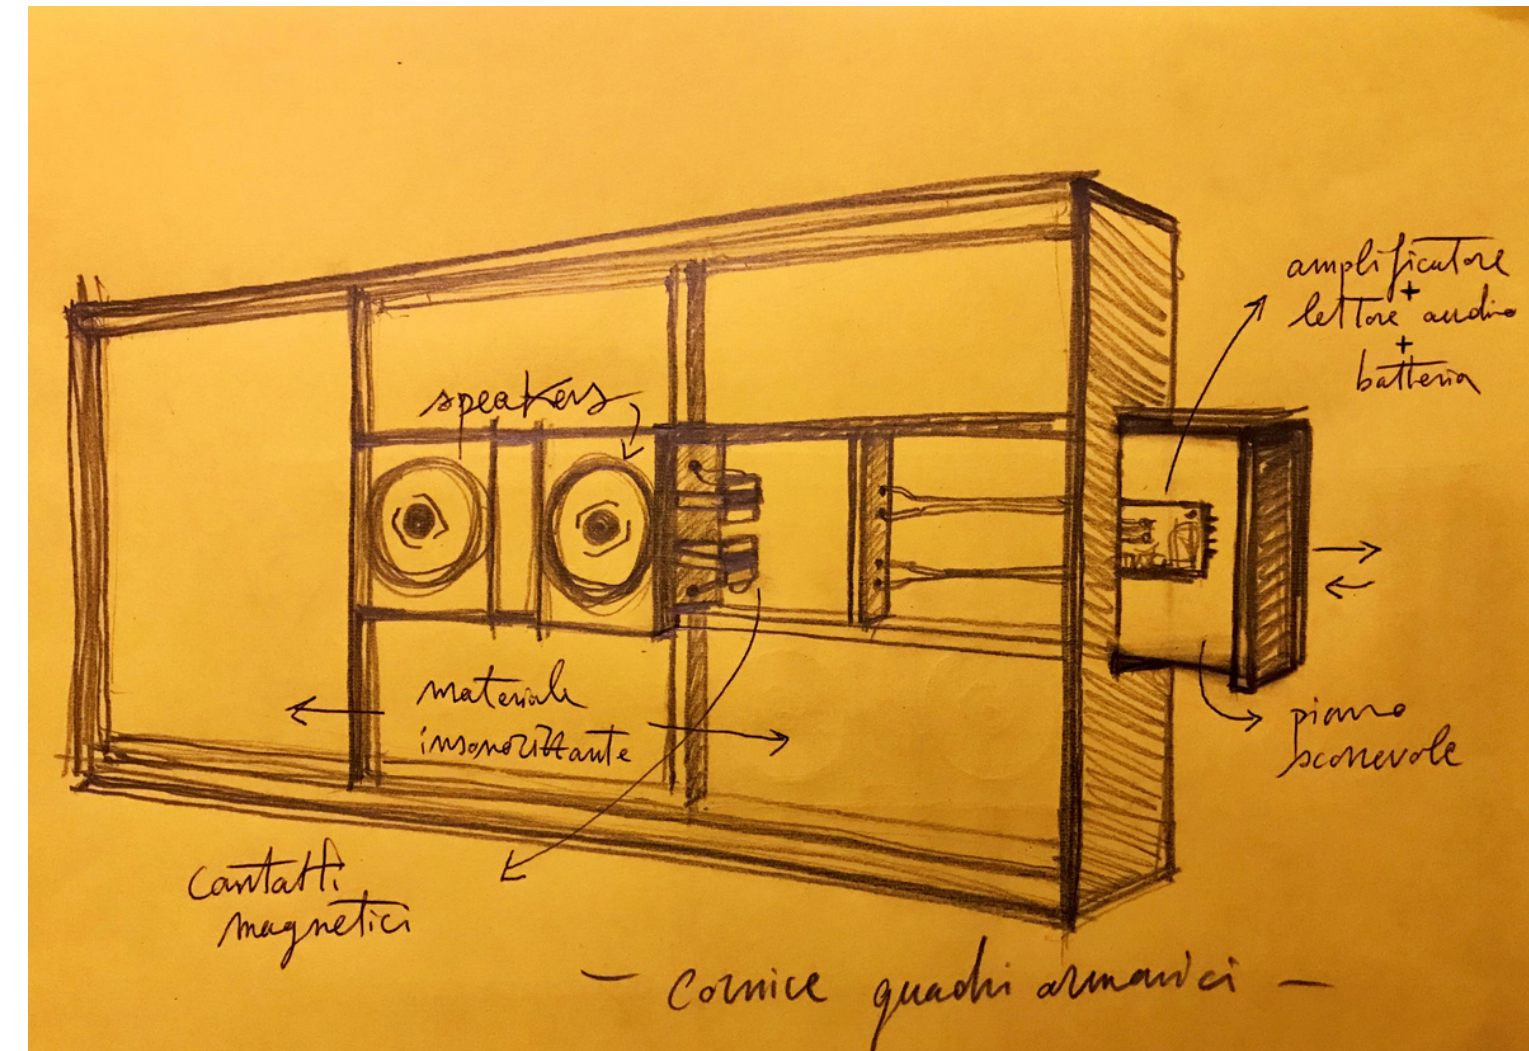 amplificatore
+
lettore audio
+
batteria
speakers
materiale
insonorizzante
piano
scorrevole
contatti
magnetici
- Cornice quadri armonici -